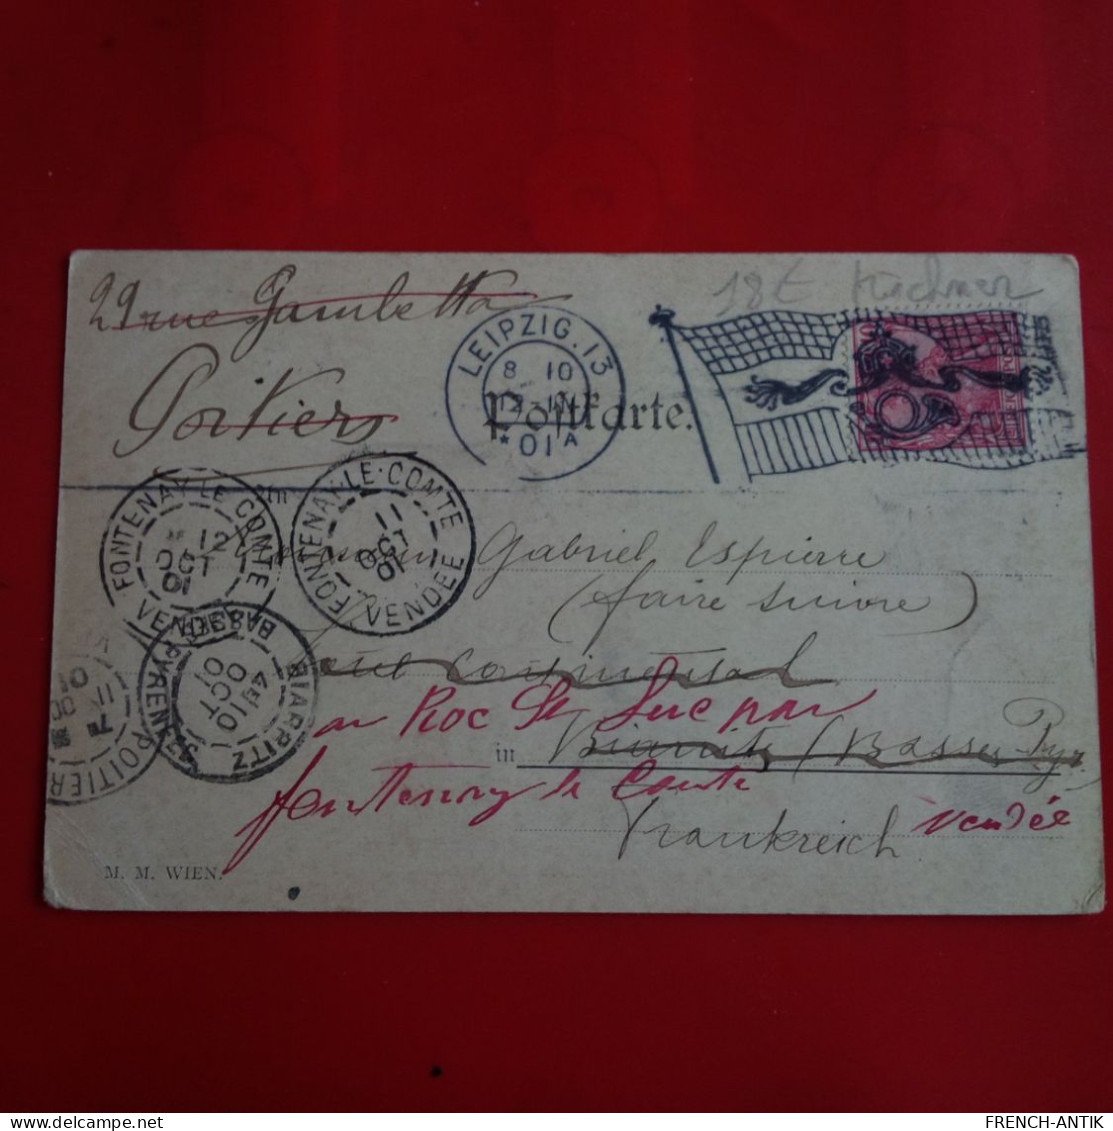 29 rue Gambetta
Poitiers
18 € Kirchner
LEIPZIG. 13
8 10
01 A
*
Postkarte.
FONTENAY-LE-COMTE
12
OCT
01
VENDÉE
FONTENAY-LE-COMTE
11
OCT
01
VENDÉE
An
Monsieur Gabriel Espierre
(faire suivre)
Continental
au Roc St Luc par
in Biarritz (Basses Pyr
fontenay le Comte
Vendée
Frankreich
BIARRITZ
BASSES PYRENEES
4E 10
OCT
01
POITIERS
M. M. WIEN.
FRENCH-ANTIK